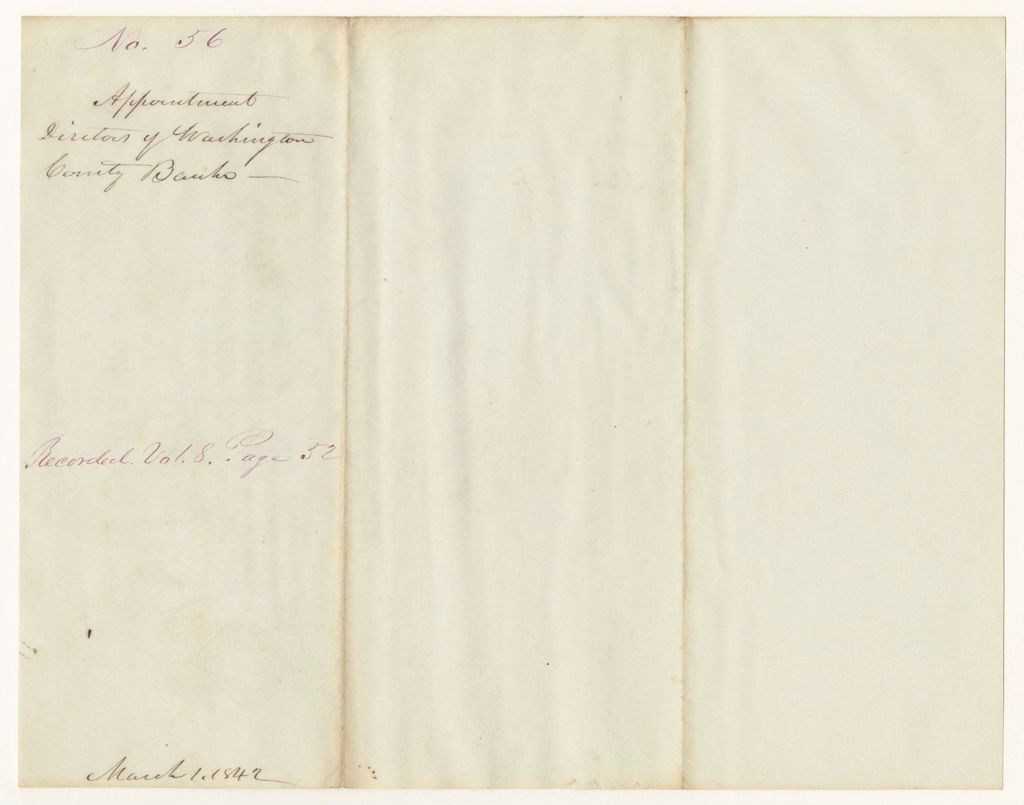 No. 56
Appointment
Directors of Washington
County Banks —
Recorded. Vol. 8. Page 52
March 1. 1842